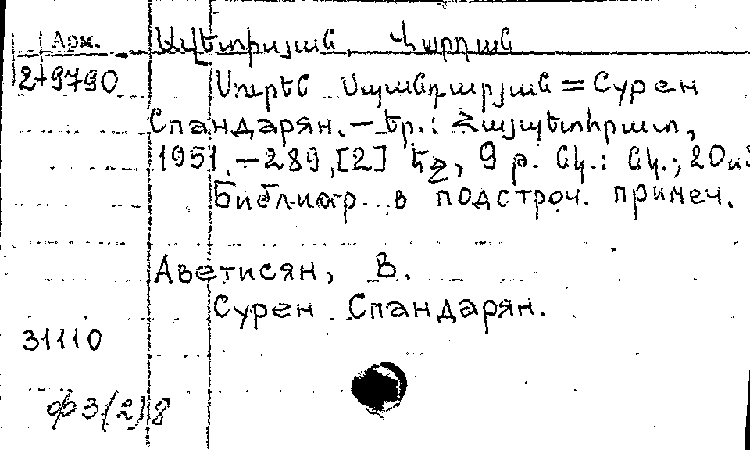 Арм. Ավետիսյան, Վարդան
2-9790 Սուրեն Սպանդարյան = Сурен
Спандарян. – Եր.: Հայպետհրատ,
1951. – 289, [2] էջ, 9 թ. նկ.: նկ.; 20սմ
Библиогр. в подстроч. примеч.
Аветисян, В.
Сурен Спандарян.
31110
ф3(2)8